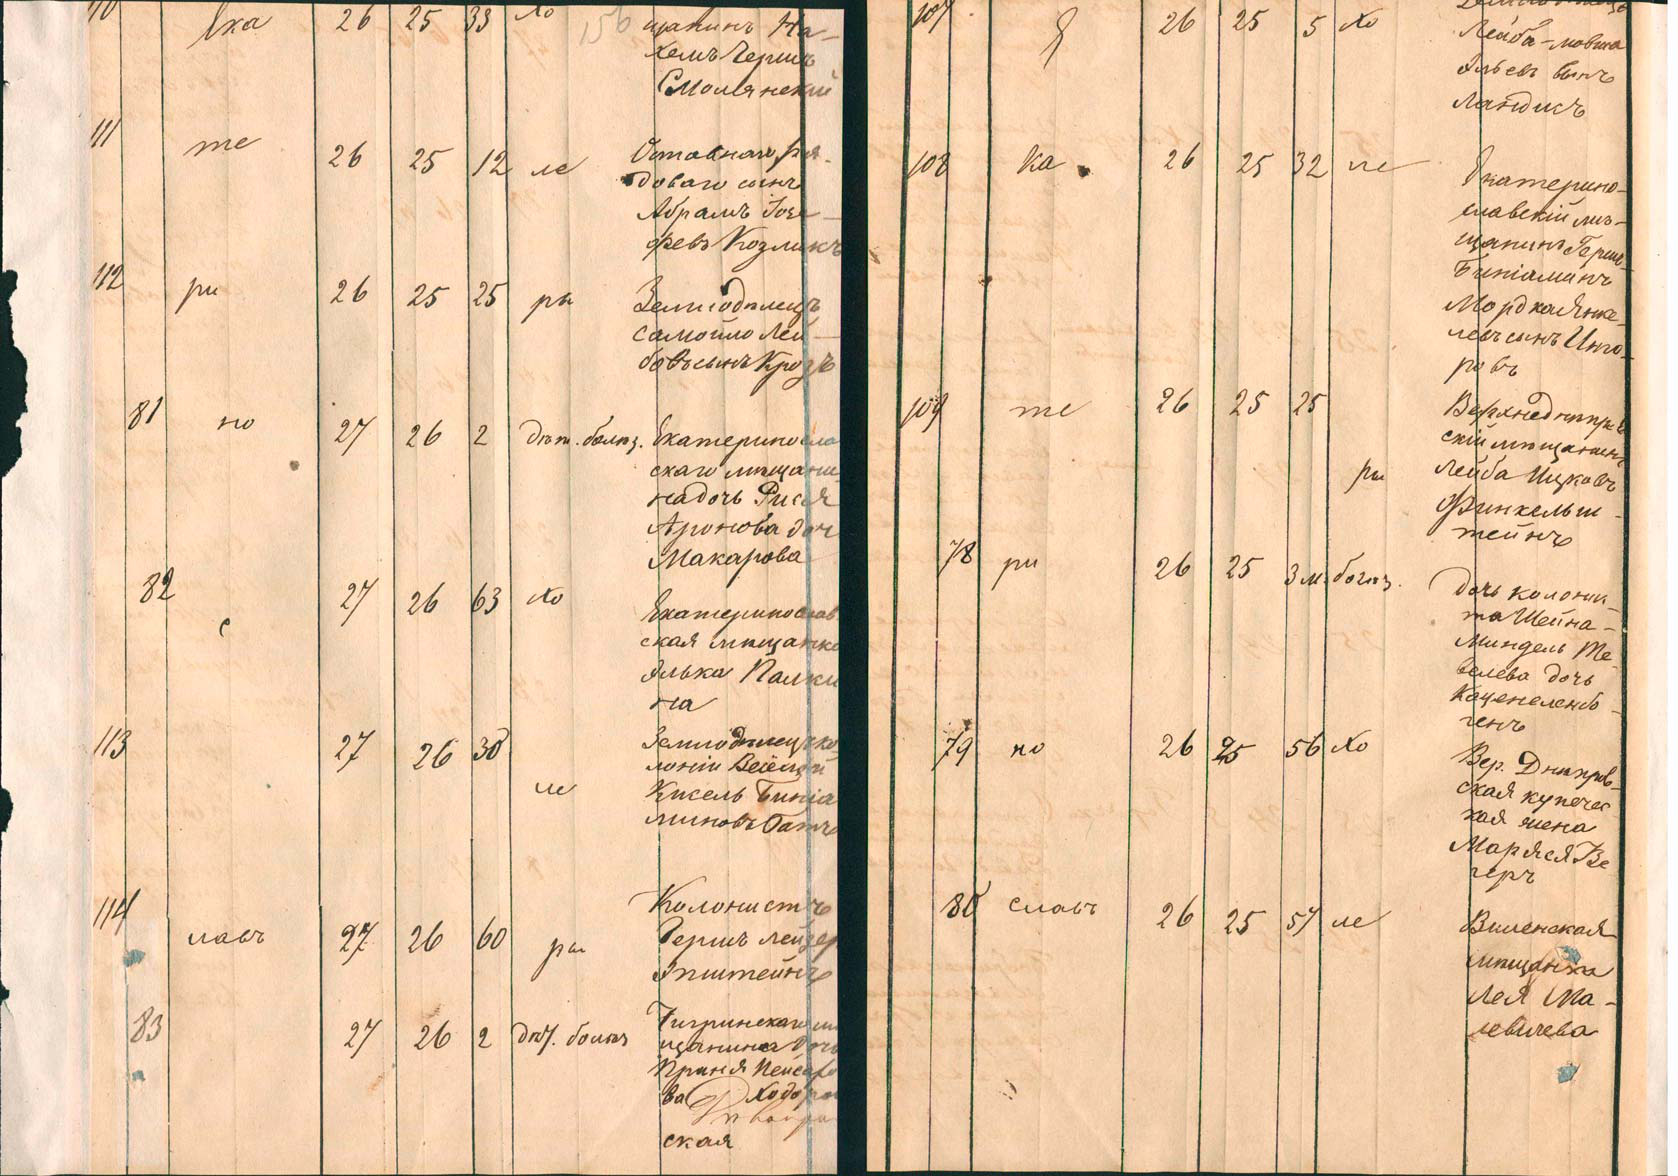 110 Ека 26 25 33 Хо щанинъ На-
хемъ Герш
Смолянскій
111 те 26 25 12 ле
доваго сынъ
Абрамъ Іозе-
февъ Козликъ
112 ри 26 25 25 ры Земледѣлецъ
Самойло Лей-
бовъ сынъ Крозъ
81 но 27 26 2 Дѣт. болѣз. Екатериносла
скаго мѣщани
на дочь Рися
Аронова доч
Макарова
82 с 27 26 63 Хо Екатеринослав
ская мѣщанка
Элька Палки
на
113 27 26 30 ле Земледѣлецъ ко
лоніи Веселой
Кисель Биніа
миновъ
114 лавъ 27 26 60 ры Колонистъ
Гершъ Лейзер
Эпштейнъ
83 27 26 2 Дѣт. болѣз Чигринскаго мѣ
щанина дочь
Ходоро
ская
107 Я 26 25 5 Хо
Лейба-Мовша
Эльевъ сынъ
Ландисъ
108 ка 26 25 32 ле Екатерино-
славскій мѣ-
щанинъ Герш-
Биніаминъ
Мордка Янке-
левъ сынъ Инго-
ровъ
109 те 26 25 25 ры Верхнеднѣпров
скій мѣщанинъ
Лейба Ицковъ
Финкельш-
тейнъ
78 ри 26 25 3 м. болѣз. Дочь колонис-
та Шейна-
Миндель Те-
велева дочь
Каценеленбо-
генъ
79 но 26 25 56 Хо Вер. Днѣпров-
ская купечес
кая жена
Маряся Ве
геръ
80 славъ 26 25 57 ле Виленская
мѣщанка
Лея Ма-
левичева